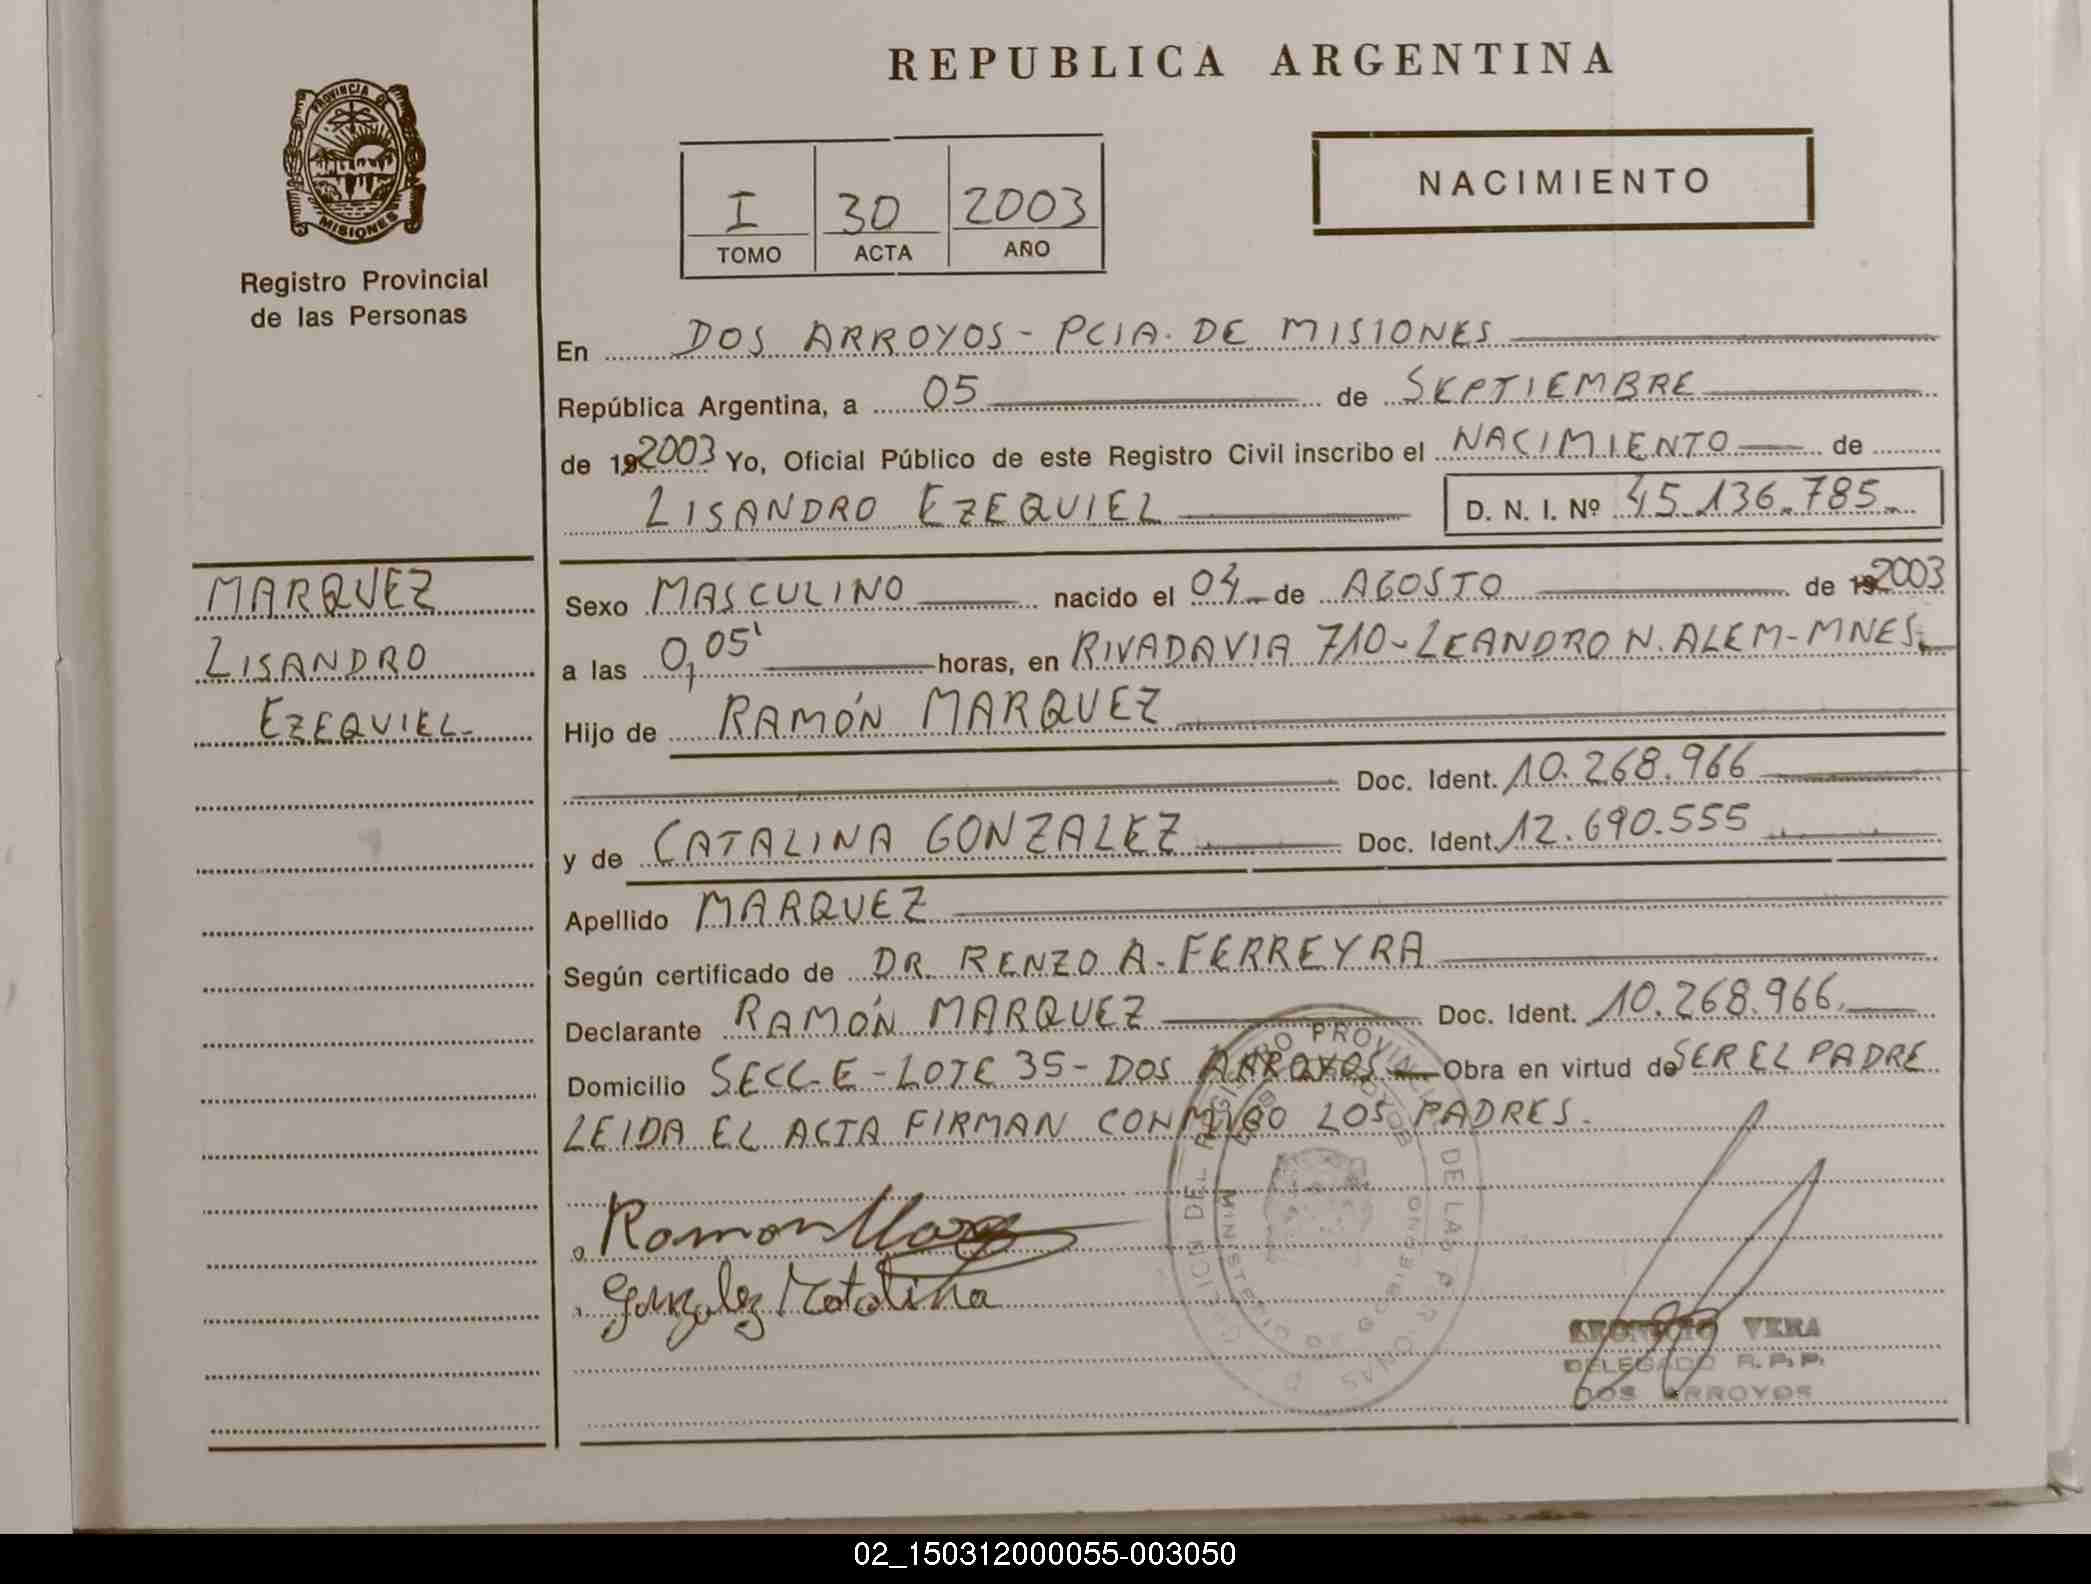 REPUBLICA ARGENTINA
PROVINCIA DE
MISIONES
Registro Provincial
de las Personas
I 30 2003
TOMO ACTA AÑO
NACIMIENTO
En DOS ARROYOS - PCIA. DE MISIONES
República Argentina, a 05 de SEPTIEMBRE
de 19 2003 Yo, Oficial Público de este Registro Civil inscribo el NACIMIENTO de
LISANDRO EZEQUIEL D. N. I. Nº 45.136.785
MARQUEZ
LISANDRO
EZEQUIEL-
Sexo MASCULINO nacido el 04 de AGOSTO de 19 2003
a las 0,05' horas, en RIVADAVIA 710-LEANDRO N. ALEM-MNES.
Hijo de RAMÓN MARQUEZ
Doc. Ident. 10.268.966
y de CATALINA GONZALEZ Doc. Ident. 12.690.555
Apellido MARQUEZ
Según certificado de DR. RENZO A. FERREYRA
Declarante RAMÓN MARQUEZ Doc. Ident. 10.268.966.
Domicilio SECC-E - LOTE 35 - DOS ARROYOS Obra en virtud de SER EL PADRE
LEIDA EL ACTA FIRMAN CONMIGO LOS PADRES.
Ramon
Gonzalez Catalina
VERA
DELEGADO R.P.P.
DOS ARROYOS
02_150312000055-003050